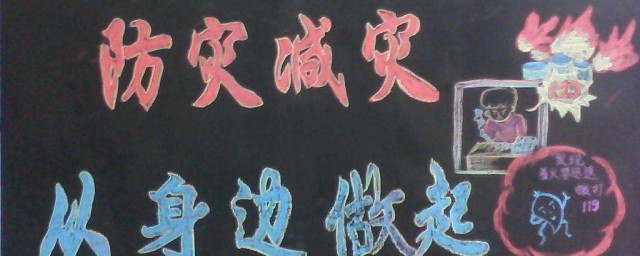 防灾减灾
从身边做起
发现
着火要尽速
拨打
119